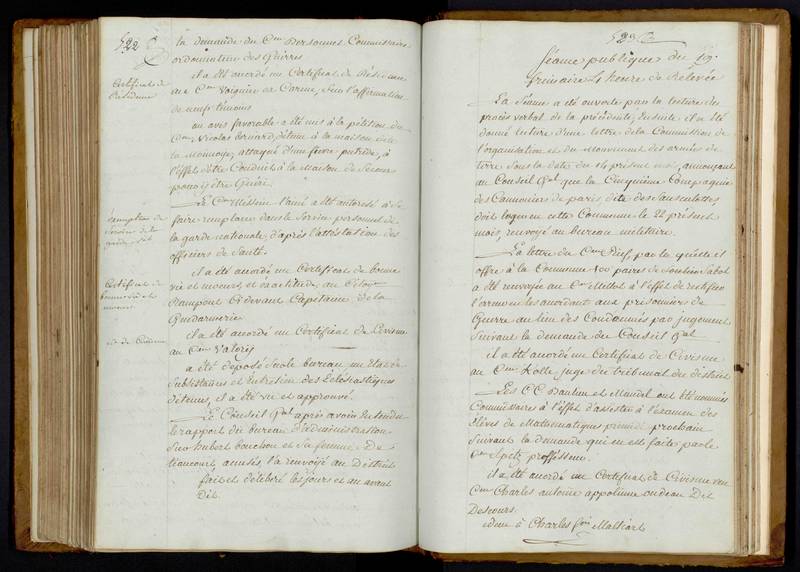 522
la demande du Cen Personnes Commissaire
ordonnateur des Guerres
Certificat de
Residence
il a été accordé un Certificat de Résidence
au Cen Voignier de Carme, sur l'affirmation
de neuf témoins
un avis favorable a été mis à la pétition du
Cen Nicolas brulard, détenu à la maison de la
la Monnoye, attaqué d'une fievre putride, à
l'effet d'être Conduit à la Maison de Secours
pour y être Guéri
exemption de
Service de la
garde nat
Le Cen Messein l'ainé a été autorisé à se
faire remplacer dans le Service personnel de
la garde nationale d'après l'attestation des
officiers de Santé.
Certificat de
bonne vie et
moeurs
il a été accordé un Certificat de bonne
vie et moeurs, et exactitude, au Citoyen
Etampont Cidevant Capitaine de la
Gendarmerie
id de Civisme
il a été accordé un Certificat de Civisme
au Cen Valory
a été déposé sur le bureau un Etat de
Subsistances et Entretien des Ecclésiastiques
détenus, il a été vu et approuvé.
Le Conseil Gal après avoir entendu
le rapport du bureau d'administration
sur hubert bouchon et sa femme de
Liancourt accusés, l'a renvoyé au District
fait et délibéré les jours et an avant
Dit.
Séance publique du 19.
frimaire 4 heure de Relevée
La Séance a été ouverte par la lecture du
procès verbal de la précédente, ensuite il a été
donné lecture d'une lettre de la Commission de
l'organisation et du Mouvement des armées de
terre sous la date du 14 présent mois, annonçant
au Conseil Gal que la Cinquième Compagnie
des Canonniers de paris, dite des Sansculottes,
doit loger en cette Commune le 22 présent
mois, renvoyé au bureau militaire.
La lettre du Cen par laquelle il
offre à la Commune 400 paires de Souliers Sabot
a été renvoyée au Cen Millot à l'effet de rectifier
l'erreur en les accordant aux prisonniers de
Guerre au lieu des Condamnés par jugement
Suivant la demande du Conseil Gal
il a été accordé un Certificat de Civisme
au Cen Rolle juge du tribunal du district
Les CC Dautun et Mandel ont été nommés
Commissaires à l'effet d'assister à l'éxamen des
Elèves de Mathematiques primidi prochain
suivant la demande qui en est faite par le
Cen Spitz professeur.
il a été accordé un Certificat de Civisme au
Cen Charles antoine appolinne ondeau Dit
Descours.
idem à Charles fois Malhiart